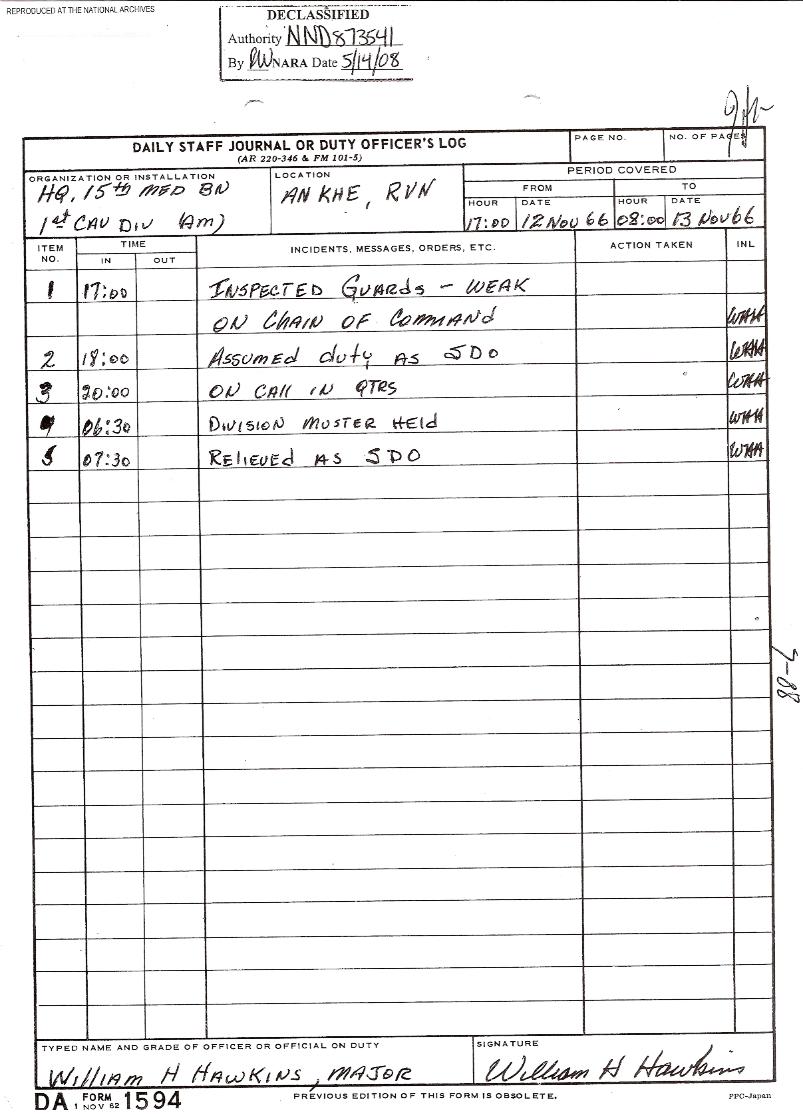 REPRODUCED AT THE NATIONAL ARCHIVES
DECLASSIFIED
Authority NND873541
By NARA Date 5/14/08
DAILY STAFF JOURNAL OR DUTY OFFICER'S LOG
(AR 220-346 & FM 101-5)
PAGE NO.
NO. OF PAGES
ORGANIZATION OR INSTALLATION
HQ, 15th MED BN
1st CAV DIV (AM)
LOCATION
AN KHE, RVN
PERIOD COVERED
FROM
TO
HOUR DATE HOUR DATE
17:00 12 NOV 66 08:00 13 NOV 66
ITEM NO.
TIME
IN OUT
INCIDENTS, MESSAGES, ORDERS, ETC.
ACTION TAKEN
INL
1 17:00 INSPECTED GUARDS - WEAK
ON CHAIN OF COMMAND WHH
2 18:00 ASSUMED duty AS SDO WHH
3 20:00 ON CALL IN QTRS WHH
4 06:30 DIVISION MUSTER HELD WHH
5 07:30 RELIEVED AS SDO WHH
7-88
TYPED NAME AND GRADE OF OFFICER OR OFFICIAL ON DUTY
WILLIAM H HAWKINS, MAJOR
SIGNATURE
William H Hawkins
DA FORM 1 NOV 62 1594
PREVIOUS EDITION OF THIS FORM IS OBSOLETE.
PPC-Japan